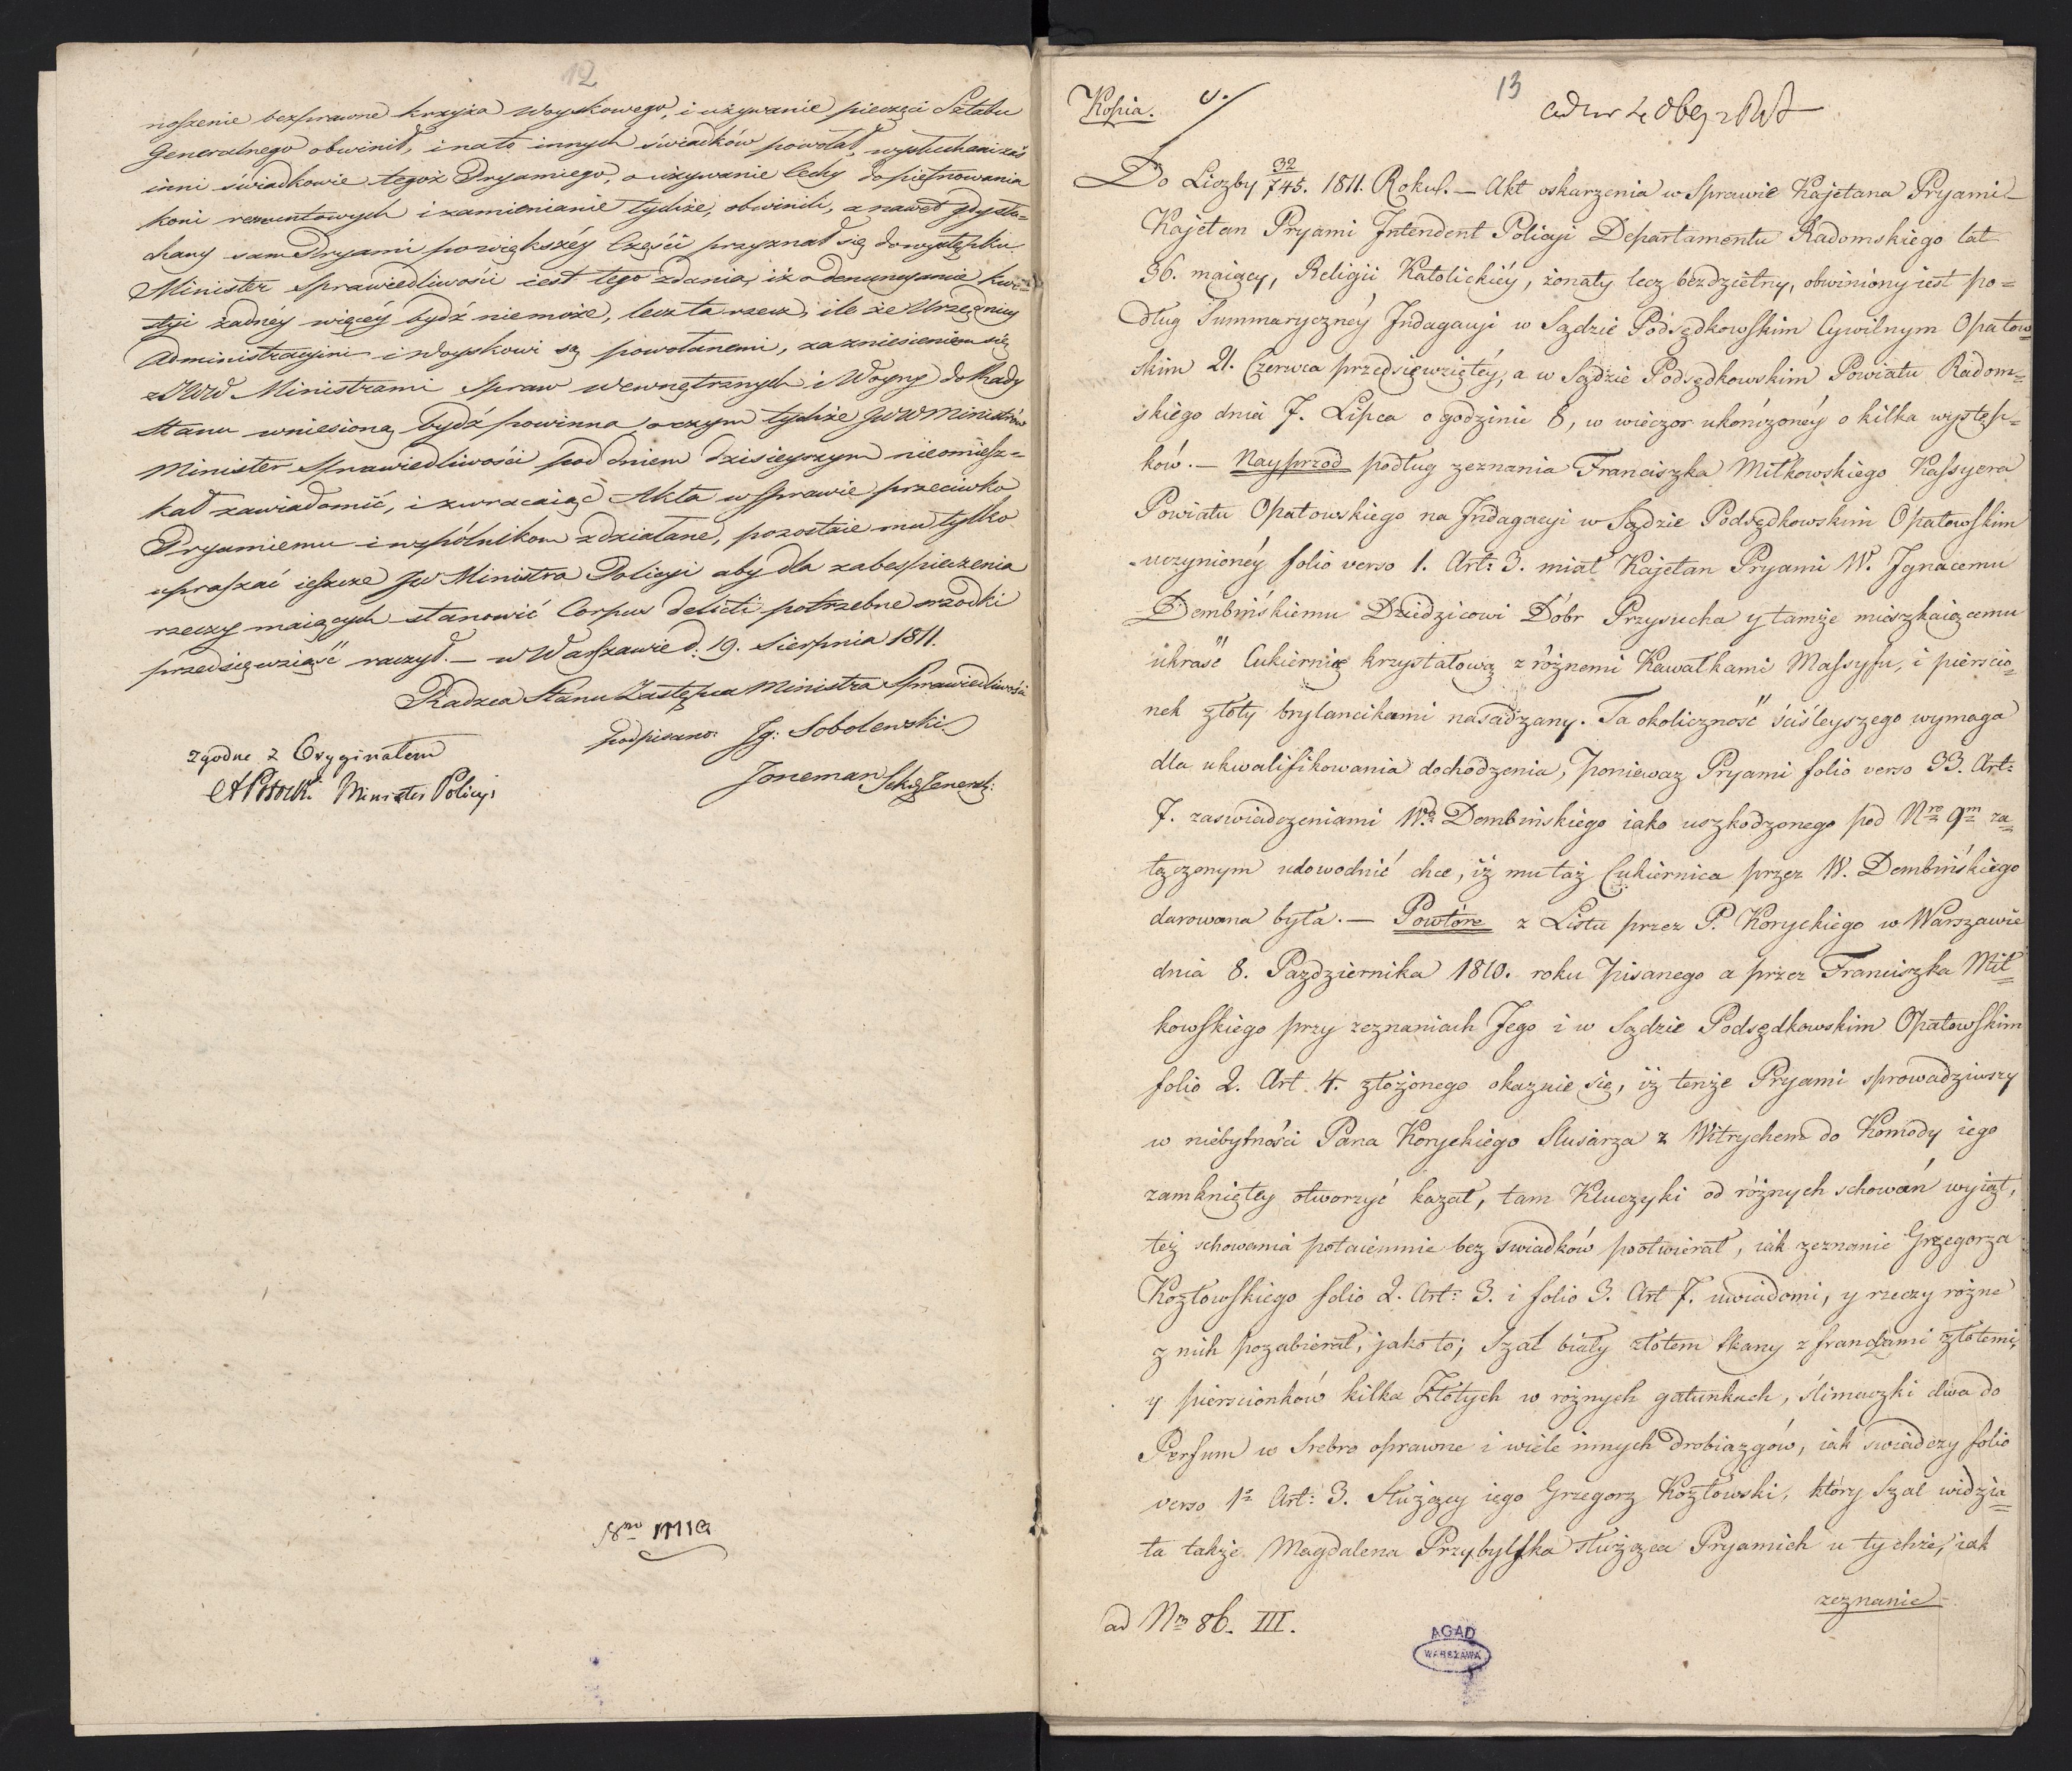 12
noszenie bezprawne krzyża Woyskowego, i używanie pieczęci Sztabu
Generalnego obwinił, i na to innych świadków powołał, wysłuchani zaś
inni świadkowie tegoż Pryamiego, o używanie Cechy do piętnowania
koni remontowych i zamienianie tychże, obwinili, a nawet gdy słu-
chany sam Pryami powiększéy Części przyznał się do występku
Minister Sprawiedliwości iest tego zdania, iż o denuncyanie kwe-
styi żadnéy więcéy bydź niemoże, lecz ta rzecz, ile że Urzędnicy
Administracyini i Woyskowi są powołanemi, za zniesieniem się
z JWW Ministrami Spraw Wewnętrznych i Woyny do Rady
Stanu wniesioną bydź powinna o czym tychże JWW Ministrów
Minister Sprawiedliwości pod dniem dzisieyszym nieomiesz-
kał zawiadomić, i zwracaiąc Akta w sprawie przeciwko
Pryamiemu i wspólnikom zdziałane, pozostaie mu tylko
upraszać ieszcze JW Ministra Policyi aby dla zabespieczenia
rzeczy maiących stanowić Corpus delicti potrzebne srzodki
przedsięwziąść raczył. — w Warszawie d. 19. Sierpnia 1811.
Radzca Stanu Zastępca Ministra Sprawiedliwości
podpisano: Ig: Sobolewski
Joneman Sekr Jeneral:
Zgodne z Oryginałem
APotocki Minister Policyi
13
Kopia.
Do Liczby 32/745. 1811. Roku. — Akt oskarzenia w Sprawie Kajetana Pryami —
Kajetan Pryami Intendent Policyi Departamentu Radomskiego lat
36. maiący, Religii Katolickiéy, żonaty lecz bezdzietny, obwiniony iest po=
dług Summaryczney Indagacyi w Sądzie Podsędkowskim Cywilnym Opatow=
skim 21. Czerwca przedsięwziętéy, a w Sądzie Podsędkowskim Powiatu Radom=
skiego dnia 7. Lipca o godzinie 8, w wieczor ukończonéy o kilka występ=
ków. — Nayprzod podług zeznania Franciszka Miłkowskiego Kassyera
Powiatu Opatowskiego na Indagacyi w Sądzie Podsędkowskim Opatowskim
uczynionéy folio verso 1. Art: 3. miał Kajetan Pryami W. Ignacemu
Dembińskiemu Dziedzicowi Dóbr Przysucha y tamże mieszkaiącemu
ukraść Cukiernię krzystałową z różnemi Kawałkami Massyfu, i pierscio=
nek złoty brylancikami nasadzany. Ta okoliczność ściśleyszego wymaga
dla ukwalifikowania dochodzenia, Poniewaz Pryami folio verso 33. Art:
7. zaswiadczeniami Wo Dembinskiego iako uszkodzonego pod Nro 9m za=
łączonym udowodnić chce, iż mu taż Cukiernica przez W. Dembińskiego
darowana była. — Powtóre z Listu przez P. Koryckiego w Warszawie
dnia 8. Pazdziernika 1810. roku Pisanego a przez Franciszka Mił=
kowskiego przy zeznaniach Jego i w Sądzie Podsędkowskim Opatowskim
folio 2. Art. 4. złożonego okazuie się, iż tenże Pryami sprowadziwszy
w niebytności Pana Koryckiego Slusarza z Witrychem do Komody iego
zamkniętey otworzyć kazał, tam Kluczyki od różnych schowań wyiął,
też schowania potaiemnie bez swiadków pootwierał, iak zeznanie Grzegorza
Kozłowskiego folio 2. Art: 3. i folio 3. Art 7. uwiadomi, y rzeczy rożne
z nich pozabierał, jako to; Szal biały złotem tkany z frandzami złotemi,
y pierscionków kilka Złotych w rożnych gatunkach, ślimaczki dwa do
Perfum w Srebro oprawne i wiele innych drobiazgów, iak swiadczy folio
verso 1o Art: 3. Służący iego Grzegorz Kozłowski, który Szal widzia=
ła także Magdalena Przybylska służąca Pryamich u tychże, iak
zeznanie
ad Nm 86. III.
AGAD
WARSZAWA